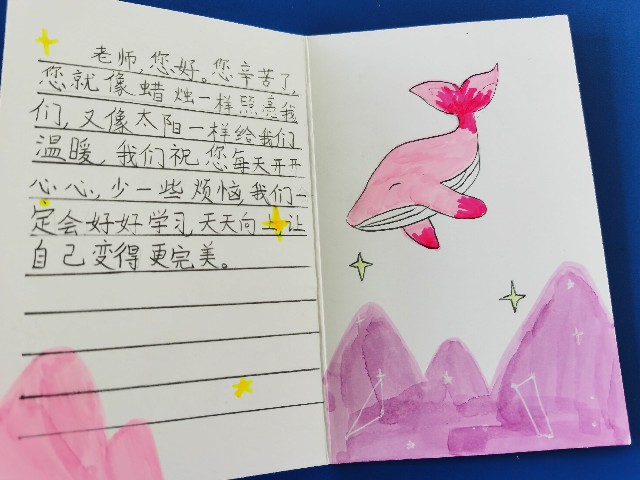 老师,您好。您辛苦了,
您就像蜡烛一样照亮我
们,又像太阳一样给我们
温暖,我们祝您每天开开
心心,少一些烦恼,我们一
定会好好学习,天天向上,让
自己变得更完美。